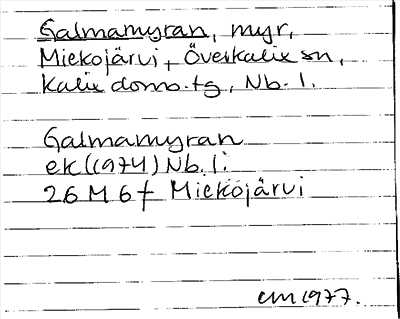 Galmamyran, myr,
Miekojärvi, Överkalix sn,
Kalix doms.tg, Nb. l.
Galmamyran
ek (1974) Nb. l:
26 M 6 f Miekojärvi
EM 1977.